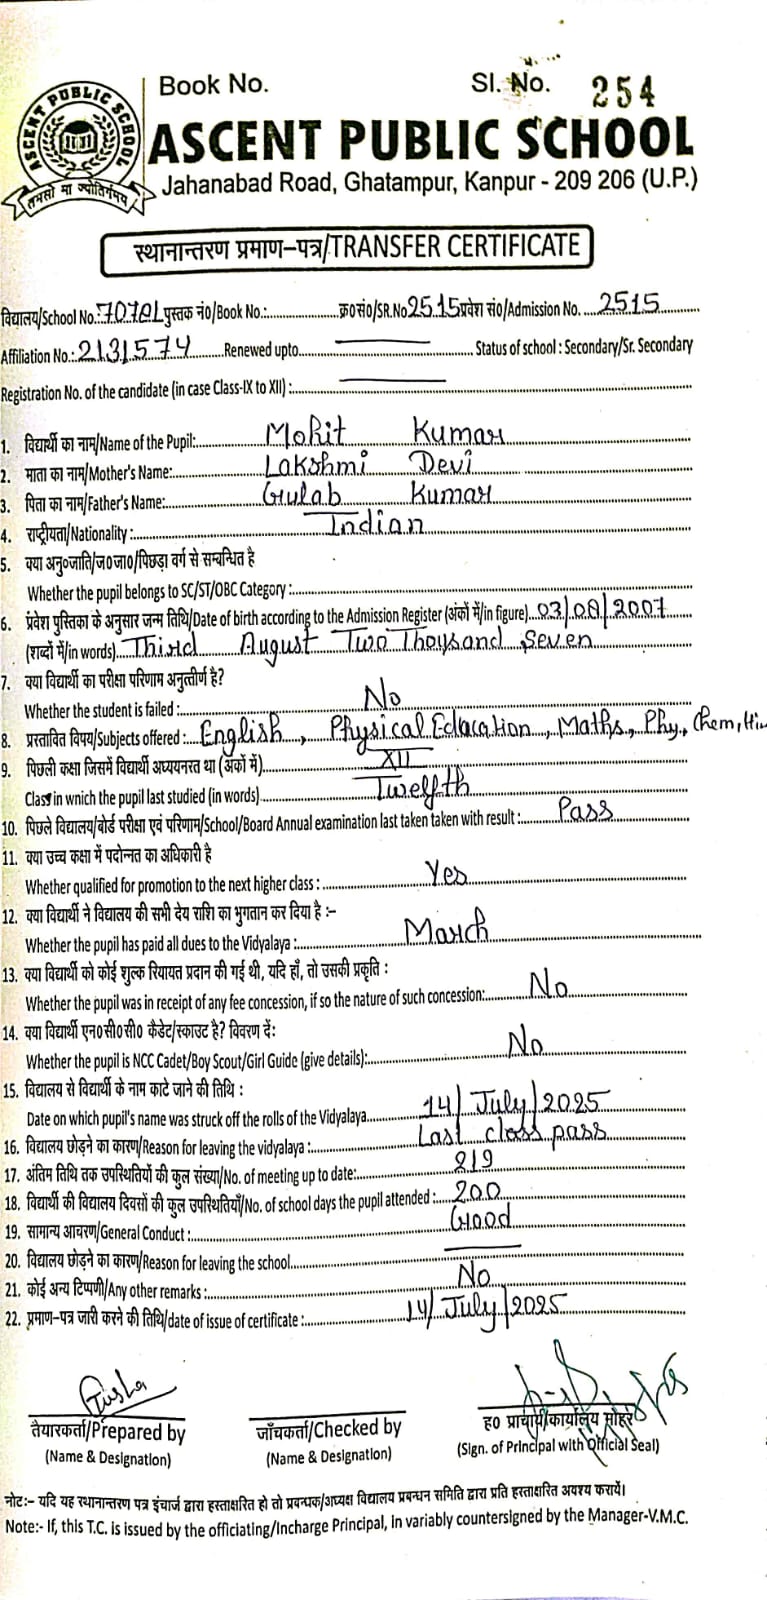 Book No. Sl. No. 254
ASCENT PUBLIC SCHOOL
तमसो मा ज्योतिर्गमय
ASCENT PUBLIC SCHOOL
Jahanabad Road, Ghatampur, Kanpur - 209 206 (U.P.)
स्थानान्तरण प्रमाण-पत्र/TRANSFER CERTIFICATE
विद्यालय/School No.: 70701 पुस्तक नं०/Book No.:.......... क्र०सं०/SR.No 2515 प्रवेश सं०/Admission No. .... 2515
Affiliation No.: 2131574 Renewed upto.......... Status of school : Secondary/Sr. Secondary
Registration No. of the candidate (in case Class-IX to XII) :..........
1. विद्यार्थी का नाम/Name of the Pupil: Mohit Kumar
2. माता का नाम/Mother's Name: Lakshmi Devi
3. पिता का नाम/Father's Name: Gulab Kumar
4. राष्ट्रीयता/Nationality : Indian
5. क्या अनु०जाति/ज०जा०/पिछड़ा वर्ग से सम्बन्धित है
Whether the pupil belongs to SC/ST/OBC Category :..........
6. प्रवेश पुस्तिका के अनुसार जन्म तिथि/Date of birth according to the Admission Register (अंकों में/in figure) 03/08/2007
(शब्दों में/in words) Third August Two Thousand Seven
7. क्या विद्यार्थी का परीक्षा परिणाम अनुत्तीर्ण है?
Whether the student is failed : No
8. प्रस्तावित विषय/Subjects offered : English, Physical Edacation, Maths, Phy., Chem, Hin
9. पिछली कक्षा जिसमें विद्यार्थी अध्ययनरत था (अंकों में) XII
Class in wnich the pupil last studied (in words) Twelfth
10. पिछले विद्यालय/बोर्ड परीक्षा एवं परिणाम/School/Board Annual examination last taken taken with result : Pass
11. क्या उच्च कक्षा में पदोन्नत का अधिकारी है
Whether qualified for promotion to the next higher class : Yes
12. क्या विद्यार्थी ने विद्यालय की सभी देय राशि का भुगतान कर दिया है :-
Whether the pupil has paid all dues to the Vidyalaya : March
13. क्या विद्यार्थी को कोई शुल्क रियायत प्रदान की गई थी, यदि हाँ, तो उसकी प्रकृति :
Whether the pupil was in receipt of any fee concession, if so the nature of such concession: No
14. क्या विद्यार्थी एन०सी०सी० कैडेट/स्काउट है? विवरण दें:
Whether the pupil is NCC Cadet/Boy Scout/Girl Guide (give details): No
15. विद्यालय से विद्यार्थी के नाम काटे जाने की तिथि :
Date on which pupil's name was struck off the rolls of the Vidyalaya 14/July/2025
16. विद्यालय छोड़ने का कारण/Reason for leaving the vidyalaya : Last class pass
17. अंतिम तिथि तक उपस्थितियों की कुल संख्या/No. of meeting up to date: 219
18. विद्यार्थी की विद्यालय दिवसों की कुल उपस्थितियाँ/No. of school days the pupil attended : 200
19. सामान्य आचरण/General Conduct : Good
20. विद्यालय छोड़ने का कारण/Reason for leaving the school..........
21. कोई अन्य टिप्पणी/Any other remarks : No
22. प्रमाण-पत्र जारी करने की तिथि/date of issue of certificate : 14/July/2025
तैयारकर्ता/Prepared by जाँचकर्ता/Checked by ह० प्राचार्य/कार्यालय मोहर
(Name & Designation) (Name & Designation) (Sign. of Principal with Official Seal)
नोट:- यदि यह स्थानान्तरण पत्र इंचार्ज द्वारा हस्ताक्षरित हो तो प्रबन्धक/अध्यक्ष विद्यालय प्रबन्धन समिति द्वारा प्रति हस्ताक्षरित अवश्य करायें।
Note:- If, this T.C. is issued by the officiating/Incharge Principal, in variably countersigned by the Manager-V.M.C.